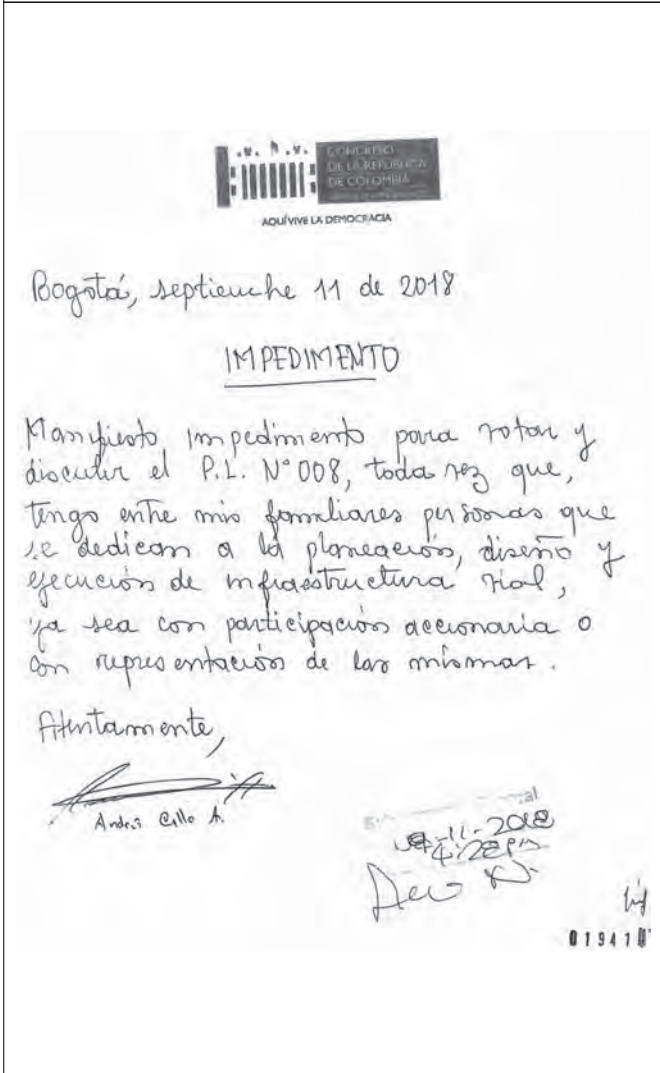 CONGRESO
DE LA REPÚBLICA
DE COLOMBIA
AQUÍ VIVE LA DEMOCRACIA
Bogotá, septiembre 11 de 2018
IMPEDIMENTO
Manifiesto impedimento para votar y
discutir el P.L. N° 008, toda vez que,
tengo entre mis familiares personas que
se dedican a la planeación, diseño y
ejecución de infraestructura vial,
ya sea con participación accionaria o
con representación de las mismas.
Atentamente,
Andrés Calle A.
11-2018
4:28 PM
01941